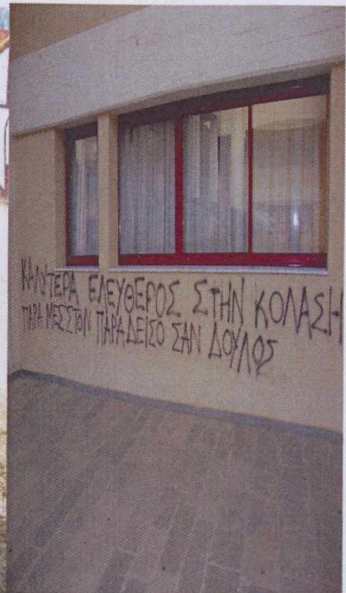 ΚΑΛΥΤΕΡΑ ΕΛΕΥΘΕΡΟΣ ΣΤΗΝ ΚΟΛΑΣΗ
ΠΑΡΑ ΜΕΣΣΤΟΝ ΠΑΡΑΔΕΙΣΟ ΣΑΝ ΔΟΥΛΟΣ